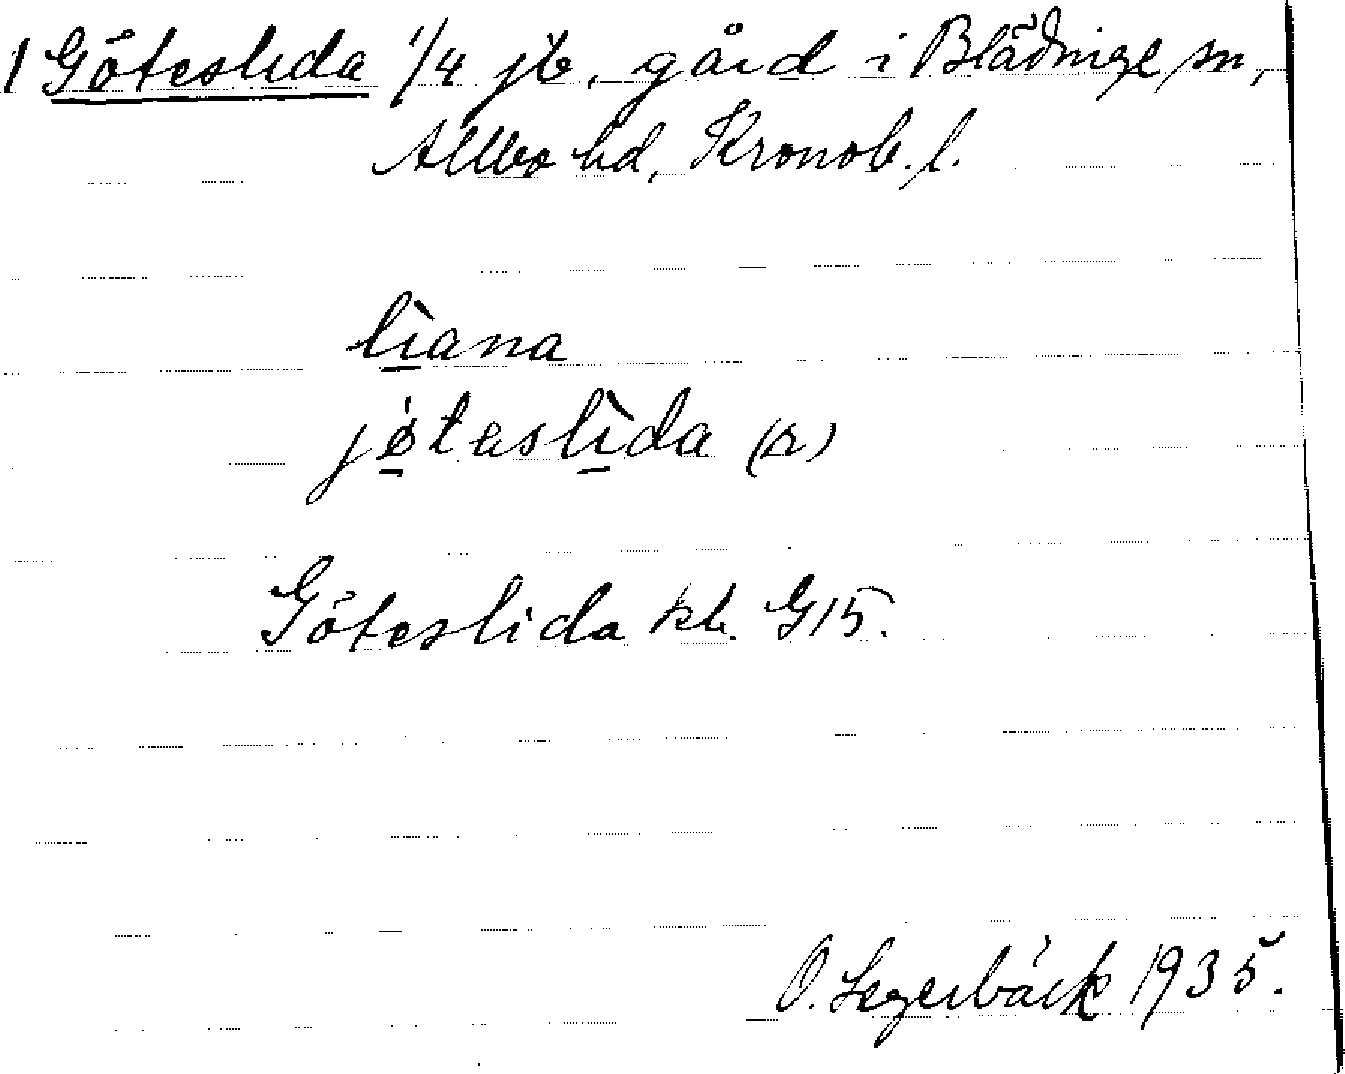 1 Göteslida 1/4 jb, gård i Blädinge sn,
Allbo hd, Kronob. l.
lìana
jøtaslìda (r)
Göteslida kb. G15.
O. Segerbäck 1935.